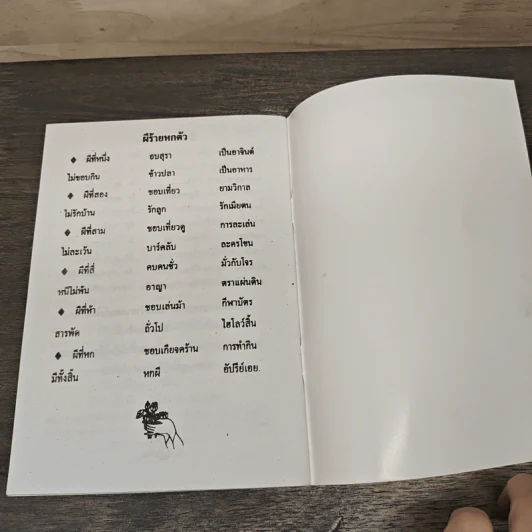 ผีร้ายหกตัว
◆ ผีที่หนึ่ง อบสุรา เป็นอาจินต์
ไม่ชอบกิน ข้าวปลา เป็นอาหาร
◆ ผีที่สอง ชอบเที่ยว ยามวิกาล
ไม่รักบ้าน รักลูก รักเมียตน
◆ ผีที่สาม ชอบเที่ยวดู การละเล่น
ไม่ละเว้น บาร์คลับ ละครโขน
◆ ผีที่สี่ คบคนชั่ว มั่วกับโจร
หนีไม่พ้น อาญา ตราแผ่นดิน
◆ ผีที่ห้า ชอบเล่นม้า กีฬาบัตร
สารพัด ถั่วโป ไฮโลว์สิ้น
◆ ผีที่หก ชอบเกียจคร้าน การทำกิน
มีทั้งสิ้น หกผี อัปรีย์เอย.